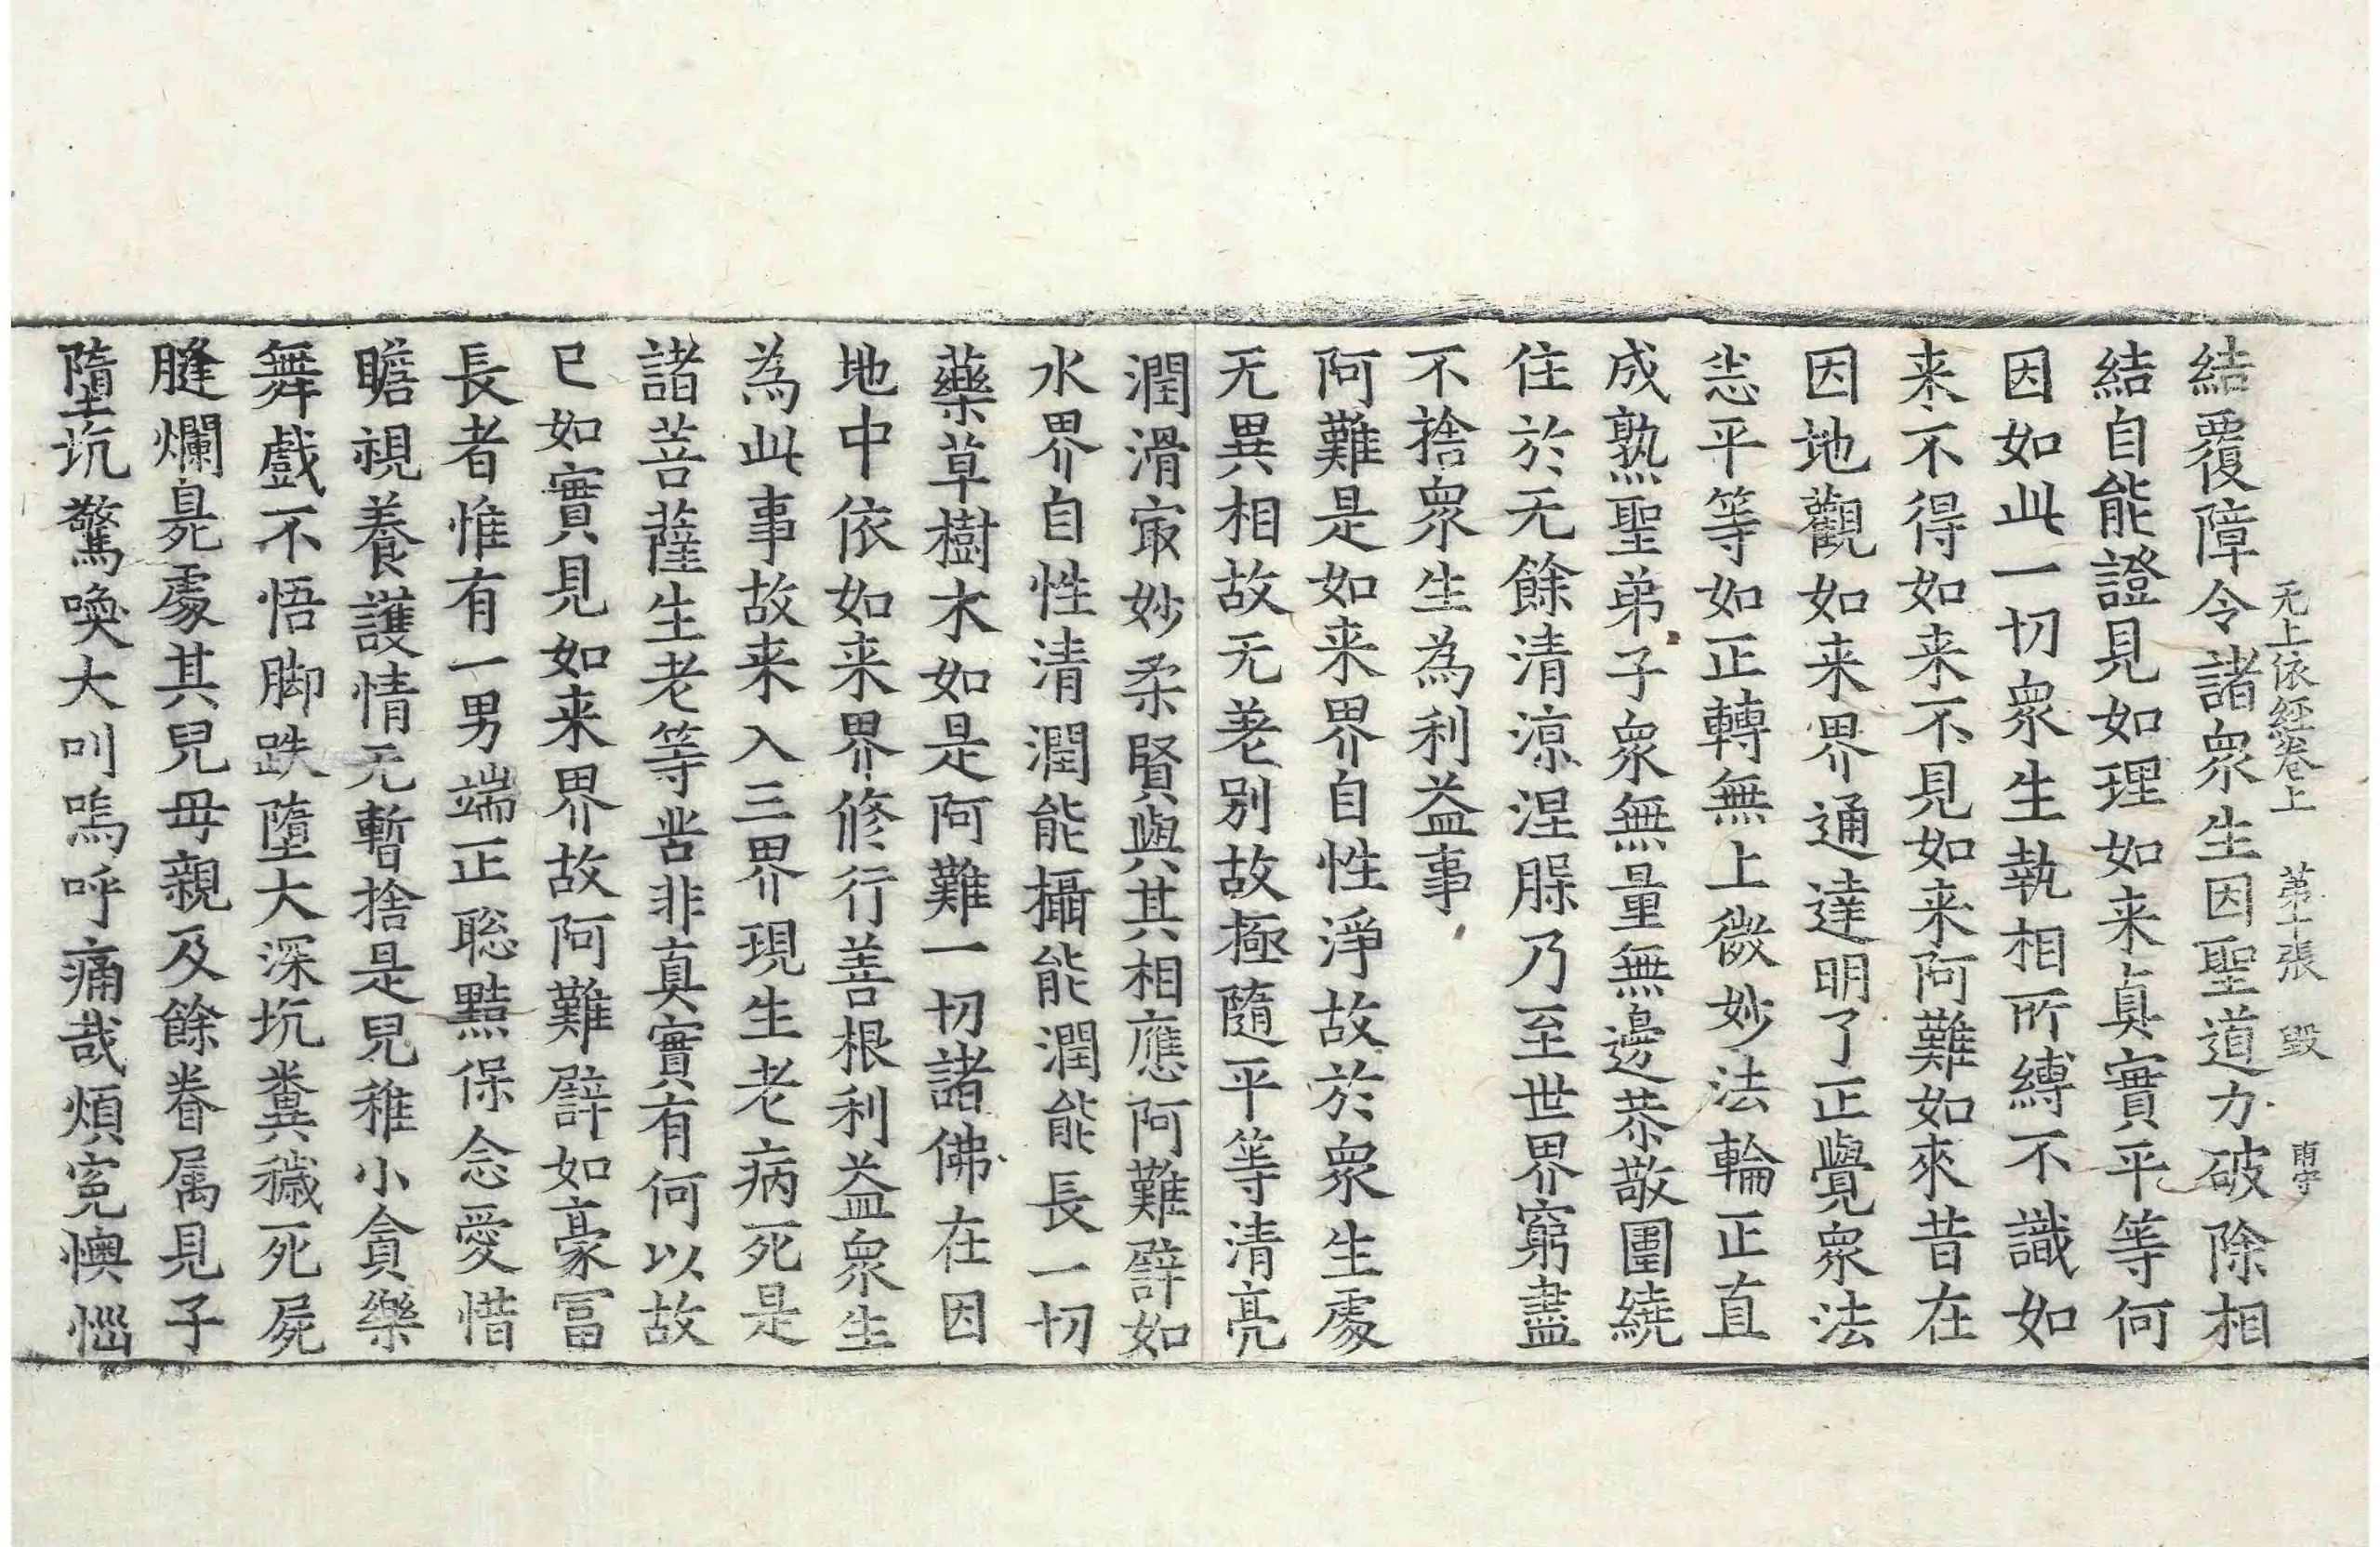 无上依経卷上 第十張 毀
結覆障令諸衆生因聖道力破除相
結自能證見如理如来真實平等何
因如此一切衆生執相所縛不識如
来不得如来不見如来阿難如來昔在
因地觀如来界通達明了正覺衆法
悉平等如正轉無上微妙法輪正直
成熟聖弟子衆無量無邊恭敬圍繞
住於无餘清涼涅槃乃至世界窮盡
不捨衆生為利益事
阿難是如来界自性淨故於衆生處
无異相故无差別故極隨平等清亮
潤滑㝡妙柔賢與其相應阿難譬如
水界自性清潤能攝能潤能長一切
藥草樹木如是阿難一切諸佛在因
地中依如来界修行善根利益衆生
為此事故来入三界現生老病死是
諸菩薩生老等苦非真實有何以故
已如實見如来界故阿難譬如豪冨
長者惟有一男端正聡黠保念愛惜
瞻視養護情无暫捨是兒稚小貪樂
舞戲不悟脚跌墮大深坑糞穢死屍
膖爛臰處其兒母親及餘眷属見子
墮坑驚喚大叫嗚呼痛哉煩寃懊惱